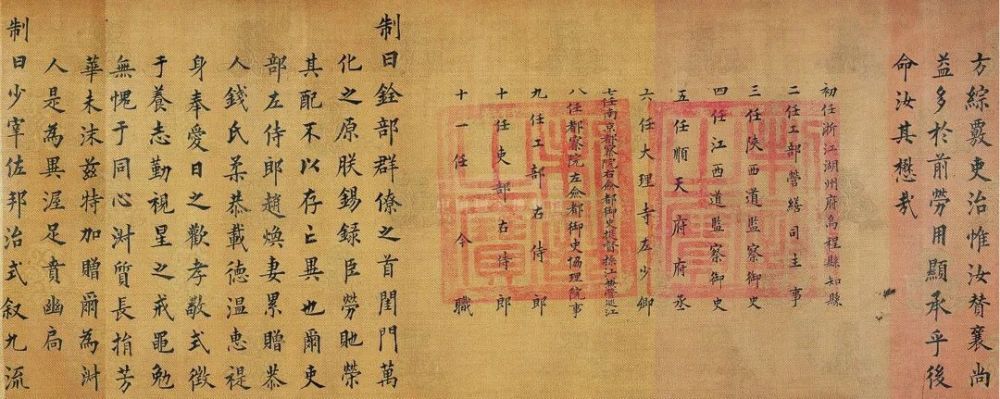 方綜覈吏治惟汝贊襄尚
益多於前勞用顯承乎後
命汝其懋哉
初任浙江湖州府烏程縣知縣
二任工部營繕司主事
三任陝西道監察御史
四任江西道監察御史
五任順天府府丞
六任大理寺左少卿
七任南京都察院右僉都御史提督操江兼管巡江
八任都察院左僉都御史協理院事
九任工部右侍郎
十任吏部右侍郎
十一任今職
制曰銓部群僚之首閨門萬
化之原朕錫録臣勞貤榮
其配不以存亡異也爾吏
部左侍郎趙煥妻累贈恭
人錢氏柔恭載德溫惠禔
身奉愛日之歡孝敬式徵
于養志勤視星之戒黽勉
無愧于同心淑質長捐芳
華未沫茲特加贈爾為淑
人是為異渥足賁幽扃
制曰少宰佐邦治式叙九流